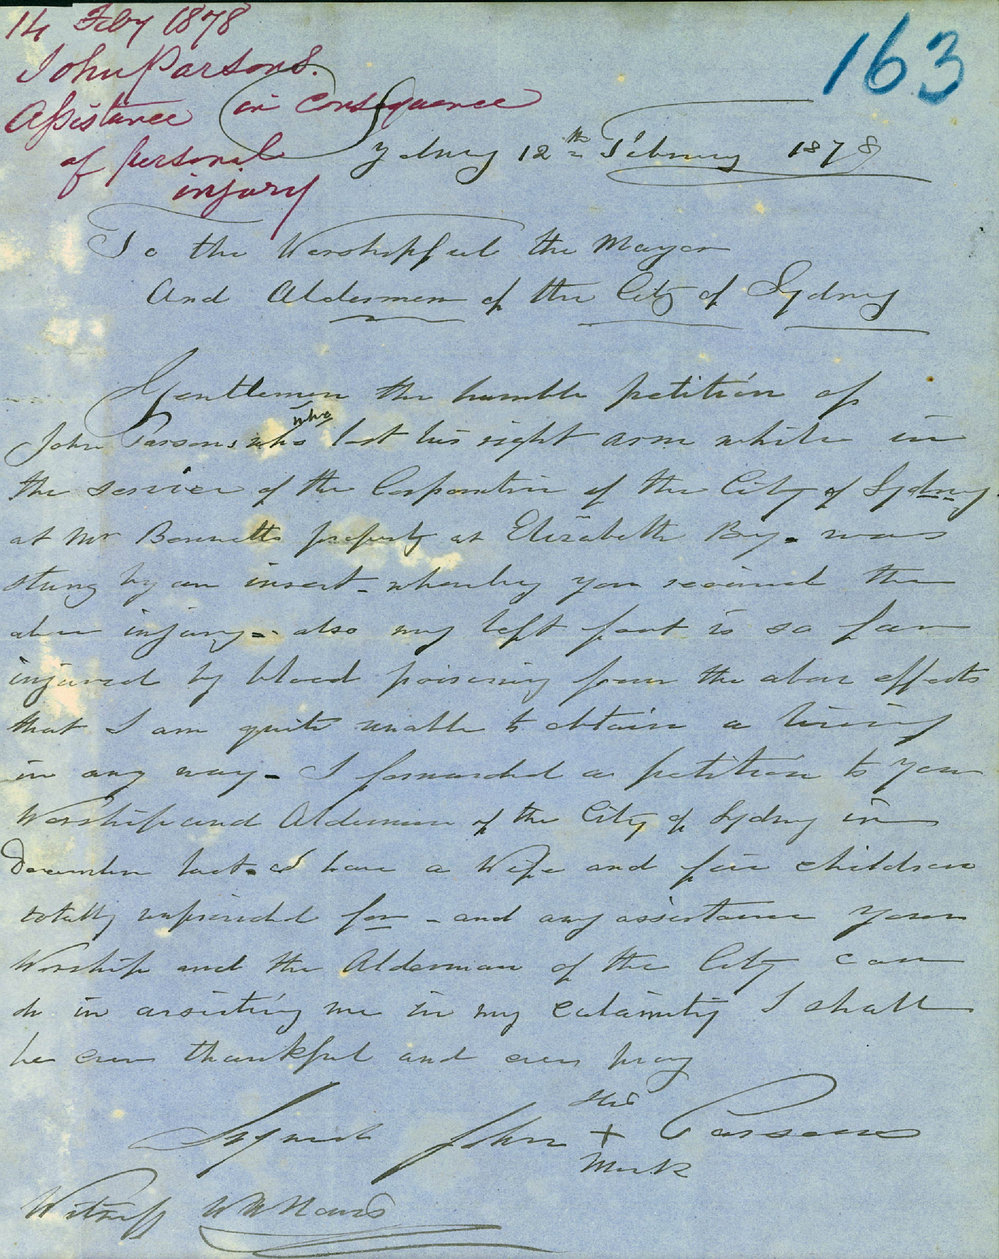 14 Feby 1878
John Parsons.
Assistance in Consequence
of personal
injury
163
Sydney 12th Febuary 1878
To the Worshipful the Mayor
And Aldermen of the City of Sydney
Gentlemen the humble petition of
who
John Parsons who lost his right arm while in
the service of the Corporation of the City of Sydney.
at Mr Bennetts property at Elizabeth Bay. was
stung by an insect - whereby you received the
above injury - also my left foot is so far
injured by blood poisining from the above effects
that I am quite unable to obtain a living
in any way - I forwarded a petition to your
Worship and Aldermen of the City of Sydney in
December last - I have a Wife and five children
totally unprovided for - and any assistance your
Worship and the Alderman of the City can
do in assisting me in my calamity I shall
be ever thankful and ever pray
His
Signed John + Parsons
Mark
Witness